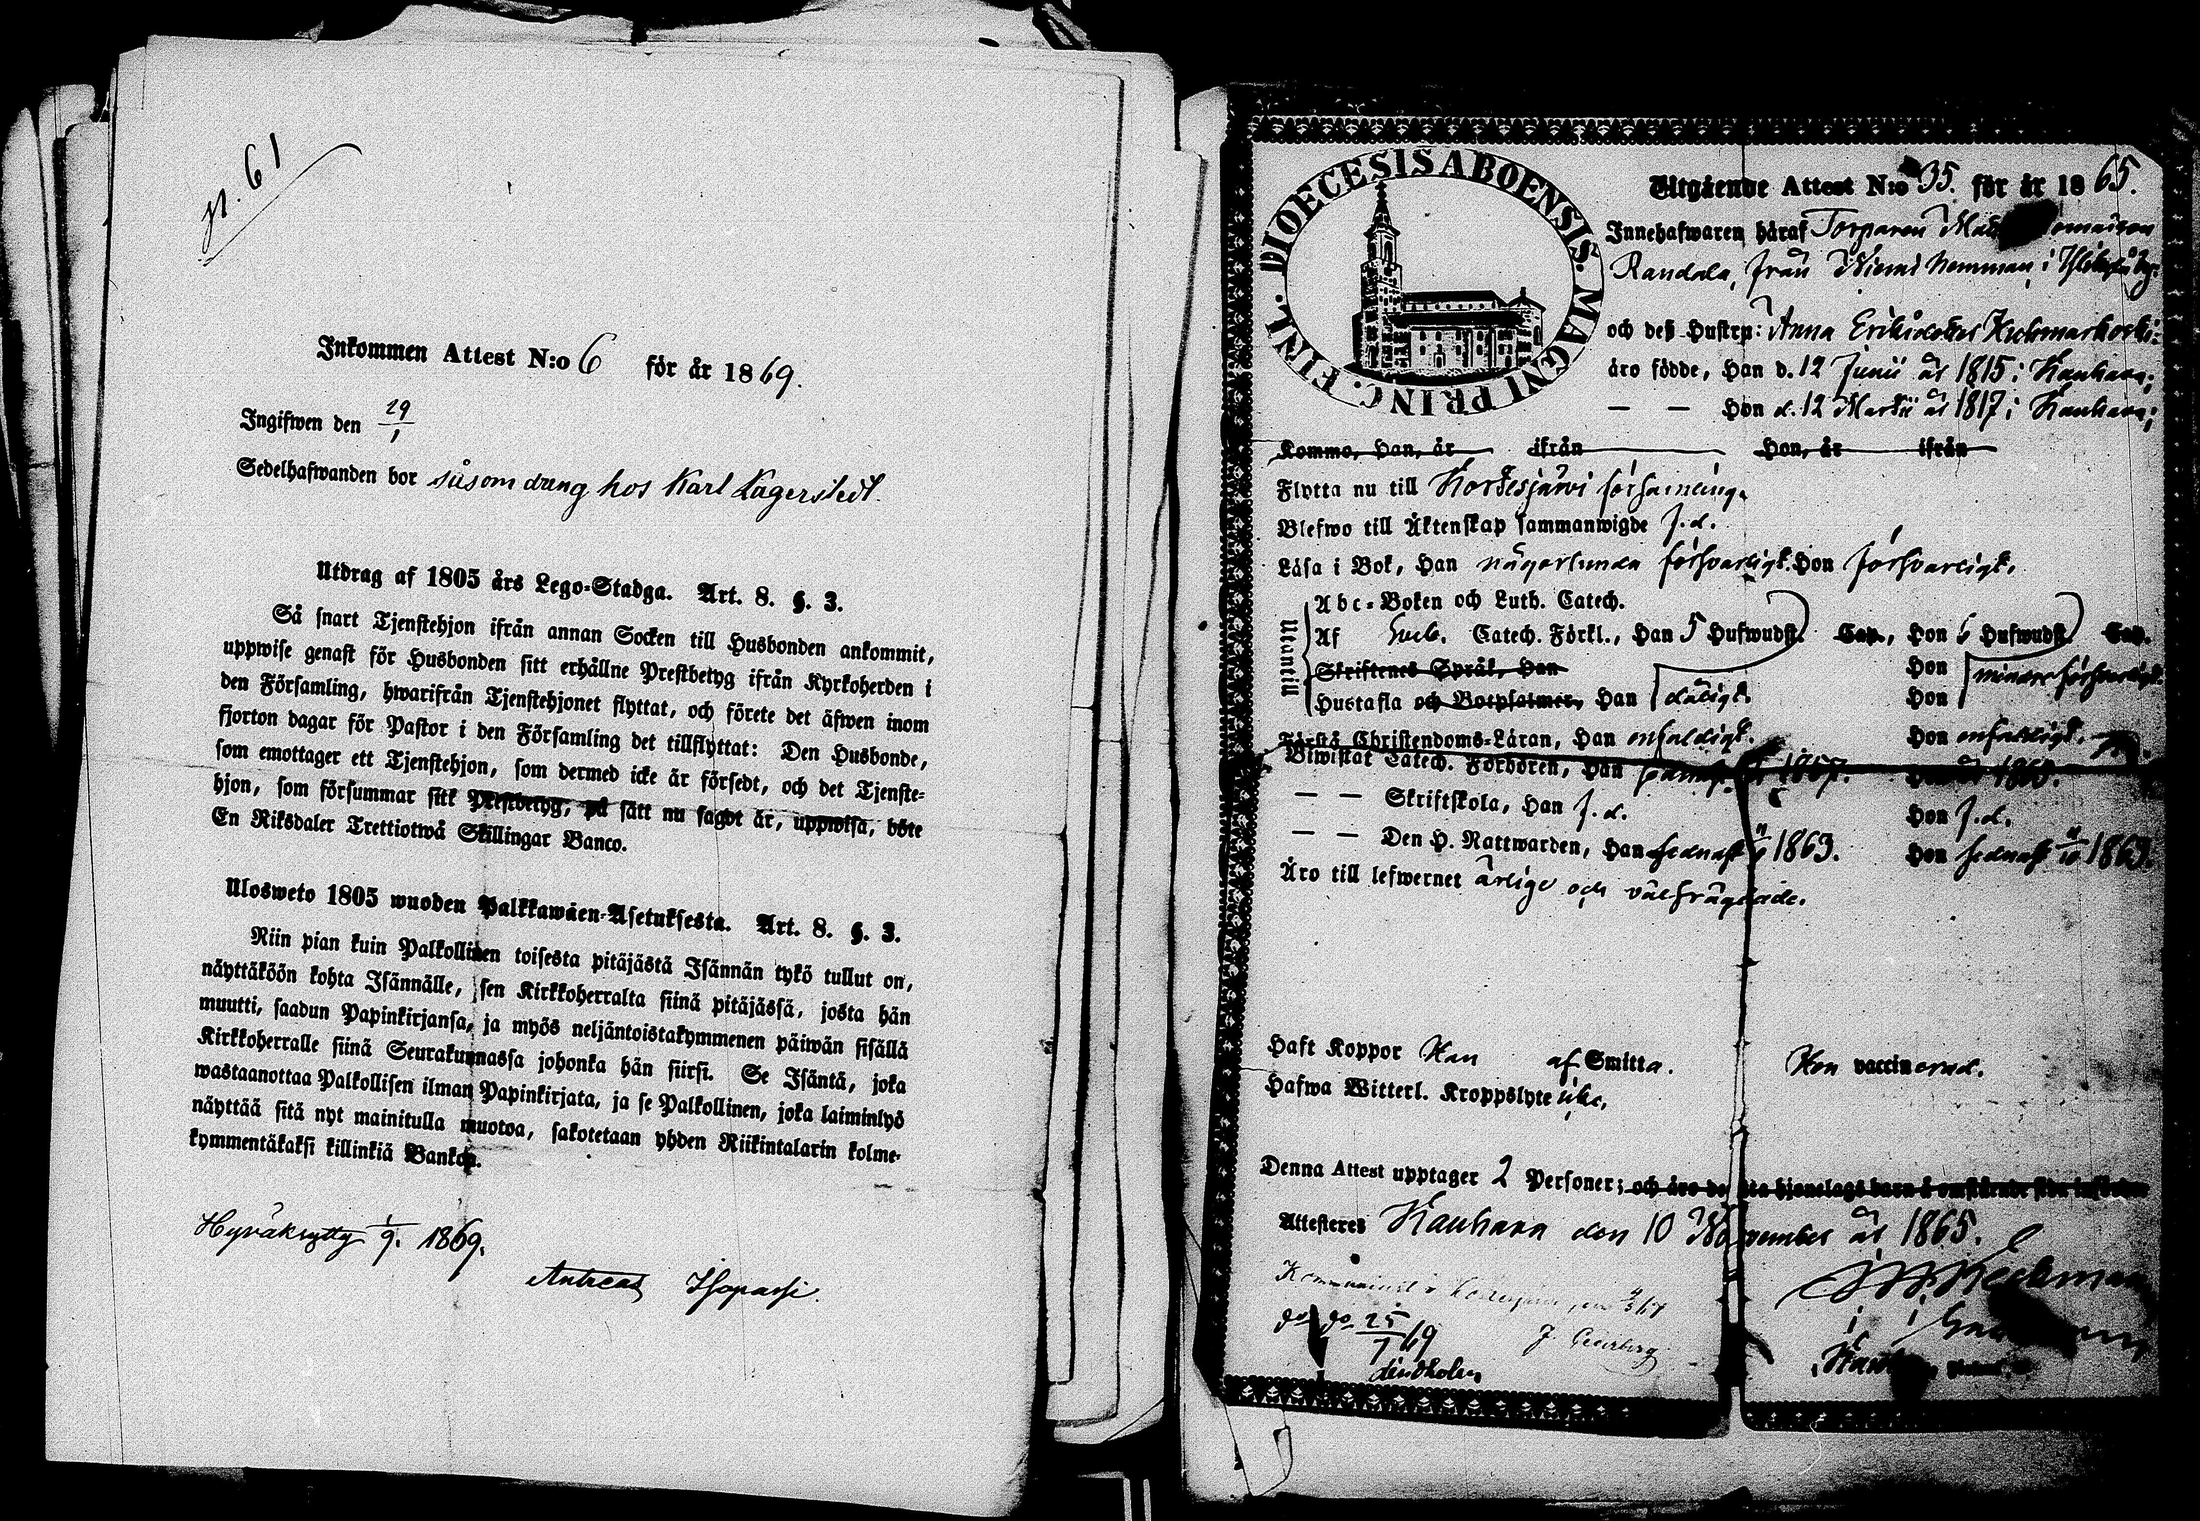 N. 61
Inkommen Attest N:o 6 för år 1869.
Ingifwen den 29/1
Sedelhafwanden bor såsom dräng hos Karl Lagerstedt.
Utdrag af 1805 års Lego-Stadga. Art. 8. §. 3.
Så snart Tjenstehjon ifrån annan Socken till Husbonden ankommit,
uppwise genast för Husbonden sitt erhållne Prestbetyg ifrån Kyrkoherden i
den Församling, hwarifrån Tjenstehjonet flyttat, och förete det äfwen inom
fjorton dagar för Pastor i den Församling det tillflyttat: Den Husbonde,
som emottager ett Tjenstehjon, som dermed icke är försedt, och det Tjenste-
hjon, som försummar sitt Prestbetyg, på sätt nu sagdt är, uppwisa, böte
En Riksdaler Trettiotwå Skillingar Banco.
Ulosweto 1805 wuoden Palkkawäen-Asetuksesta. Art. 8. §. 3.
Niin pian kuin Palkollinen toisesta pitäjästä Isännän tykö tullut on,
näyttäköön kohta Isännälle, sen Kirkkoherralta siinä pitäjässä, josta hän
muutti, saadun Papinkirjansa, ja myös neljäntoistakymmenen päiwän sisällä
Kirkkoherralle siinä Seurakunnassa johonka hän siirsi. Se Isäntä, joka
wastaanottaa Palkollisen ilman Papinkirjata, ja se Palkollinen, joka laiminlyö
näyttää sitä nyt mainitulla muotoa, sakotetaan yhden Riikintalarin kolme-
kymmentäkaksi killinkiä Bankop.
Hyväksytty 1/9. 1869.
Antreas Isopassi.
DIOECESIS ABOENSIS. MAGNI PRINC. FINL.
Utgående Attest N:o 35. för år 1865.
Innehafwaren häraf Torparen
Randala, från Niemi hemman i
och deß Hustru: Anna Eriksdotter
äro födde, Han d. 12 Junii år 1815 i Kauhava;
— — Hon d. 12 Martii år 1817 i Kauhava;
Kommo, Han, år ifrån Hon, år ifrån
Flytta nu till Kortesjärvi församling.
Blefwo till Äktenskap sammanwigde f.d.
Läsa i Bok, Han någorlunda försvarligt. Hon försvarligt.
Utantill
Abc-Boken och Luth. Catech.
Af Catech. Förkl., Han 5 Hufwudst. Cap., Hon 6 Hufwudst. Cap.
Skriftenes Språk, Han Hon mindre försvarligt.
Hustafla och Botpsalmer, Han dåligt. Hon
Förstå Christendoms-Läran, Han enfaldigt. Hon enfaldigt.
Biwistat Catech. Förhören, Han
— — Skriftskola, Han f.d. Hon f.d.
— — Den H. Nattwarden, Han sednast 1863. Hon sednast 1863.
Äro till lefwernet ärlige och välfrägdade.
Haft Koppor Han af Smitta. Hon vaccinerad.
Hafwa Witterl. Kroppslyte icke.
Denna Attest upptager 2 Personer;
Attesteres Kauhava den 10 November år 1865.
25/7 69
Lindholm